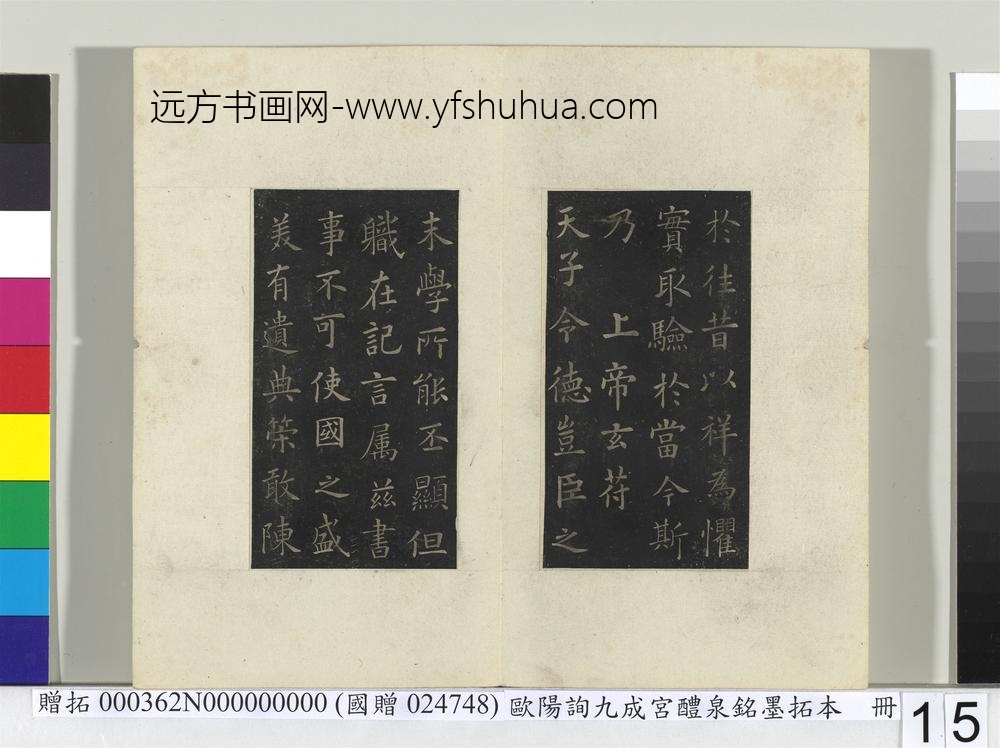 远方书画网-www.yfshuhua.com
於往昔以祥為懼
實取驗於當今斯
乃 上帝玄符
天子令德豈臣之
末學所能丕顯但
職在記言属茲書
事不可使國之盛
美有遺典策敢陳
贈拓 000362N000000000 (國贈 024748) 歐陽詢九成宮醴泉銘墨拓本 冊
15